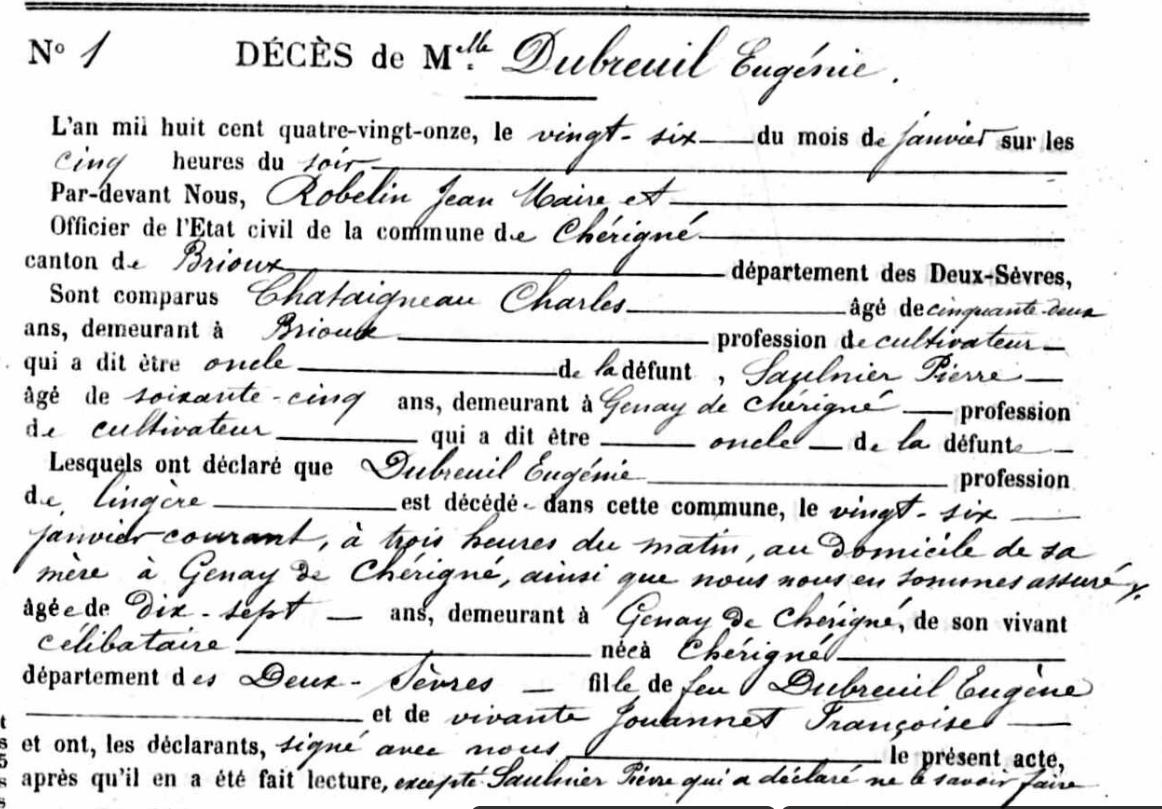 N° 1 DÉCÈS de Melle Dubreuil Eugénie.
L'an mil huit cent quatre-vingt-onze, le vingt-six du mois de janvier sur les
cinq heures du soir
Par-devant Nous, Robelin Jean Maire et
Officier de l'Etat civil de la commune de Chérigné
canton de Brioux département des Deux-Sèvres,
Sont comparus Chataigneau Charles âgé de cinquante-deux
ans, demeurant à Brioux profession de cultivateur
qui a dit être oncle de la défunt , Saulnier Pierre
âgé de soixante-cinq ans, demeurant à Genay de Chérigné profession
de cultivateur qui a dit être oncle de la défunte
Lesquels ont déclaré que Dubreuil Eugénie profession
de lingère est décédé dans cette commune, le vingt-six
janvier courant, à trois heures du matin, au domicile de sa
mère à Genay de Chérigné, ainsi que nous nous en sommes assuré
âgée de Dix-sept ans, demeurant à Genay de Chérigné, de son vivant
célibataire née à Chérigné
département des Deux-Sèvres fille de feu Dubreuil Eugène
et de vivante Jouannet Françoise
et ont, les déclarants, signé avec nous le présent acte,
après qu'il en a été fait lecture, excepté Saulnier Pierre qui a déclaré ne le savoir faire